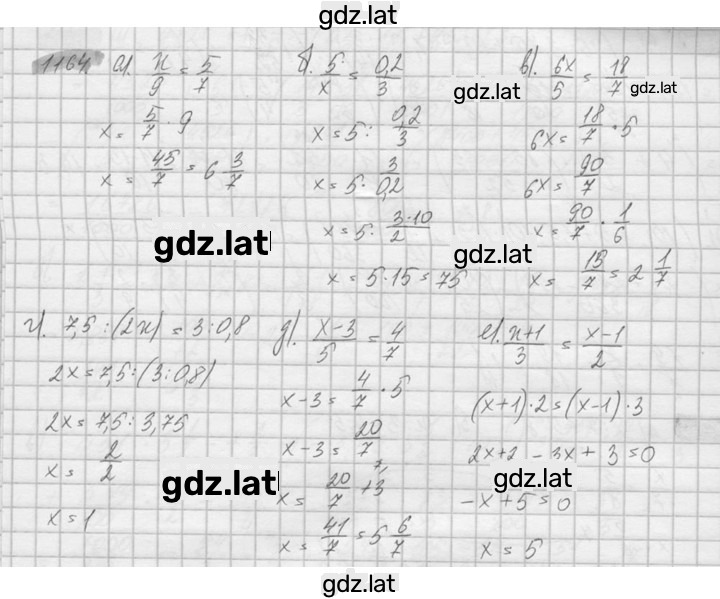 gdz.lat
1164 а). x/9 = 5/7
x = 5/7 · 9
x = 45/7 = 6 3/7
б). 5/x = 0,2/3
x = 5 : 0,2/3
x = 5 · 3/0,2
x = 5 · 3·10/2
x = 5·15 = 75
в). 6x/5 = 18/7
6x = 18/7 · 5
6x = 90/7
x = 90/7 · 1/6
x = 15/7 = 2 1/7
gdz.lat
gdz.lat
gdz.lat
gdz.lat
г). 7,5 : (2x) = 3 : 0,8
2x = 7,5 : (3 : 0,8)
2x = 7,5 : 3,75
x = 2/2
x = 1
д). x-3/5 = 4/7
x-3 = 4/7 · 5
x-3 = 20/7
x = 20/7 + 3
x = 41/7 = 5 6/7
е). x+1/3 = x-1/2
(x+1)·2 = (x-1)·3
2x+2 - 3x + 3 = 0
-x + 5 = 0
x = 5
gdz.lat
gdz.lat
gdz.lat